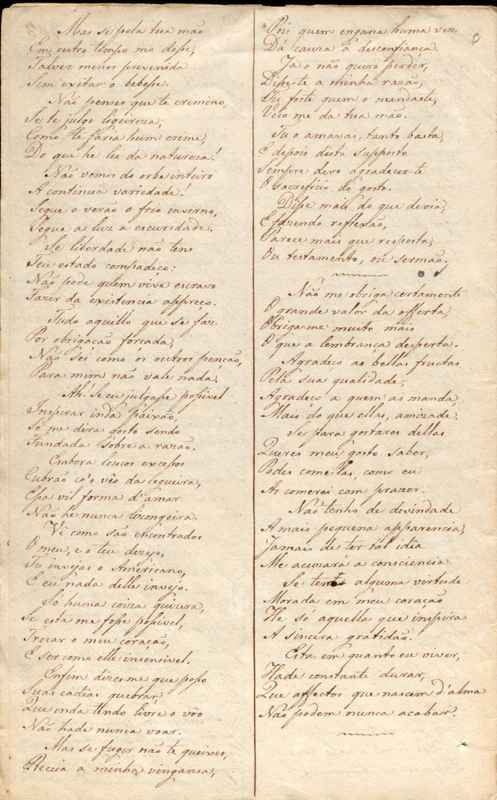 Mas se pela tua mão
Em outro tempo me disse,
Talvez menos prevenida
Sem exitar o bebesse.
Não penses que te crimino,
Se te julgo ligeireza,
Como te faria hum crime,
Do que he lei da natureza!
Não vemos do orbe inteiro
A continua variedade!
Segue o verão o frio inverno,
Segue a luz a escuridade.
Se liberdade não tens
Teu estado compadeço:
Não póde quem vive escravo
Fazer da existencia appreço.
Tudo aquillo que se faz
Por obrigação forçada,
Não sei como os outros pensão,
Para mim não vale nada,
Ah! Se eu julgasse possivel
Inspirar inda paixão,
Só me dera gosto sendo
Fundada sobre a razão.
Embora loucos excessos
Cubrão co'o véo da cegueira,
Essa vil forma d'amar
Não he nunca lisongeira.
Vi como são encontrados
O meu, e o teu desejo,
Tu invejas o Americano,
E eu nada delle invejo.
Só huma couza quizera,
Se esta me fosse possivel,
Trocar o meu coração,
E ser como elle insensivel.
Enfim dizerme que posso
Suas cadias quebrar,
Que onda tendo livre o vôo
Não hade nunca voar.
Mas se fugir não te queixes,
Receia a minha vingansa,
Pois quem engana huma vez
Dá cauza á desconfiança.
Já o não quero perder,
Disse-te a minha razão,
Tu foste quem o mandaste,
Veio me da tua mão.
Tu o amavas, tanto basta,
E depois disto supposto
Sempre devo agradecer-te
O sacrificio do gosto.
Disse mais do que devia,
E fazendo reflexão,
Parece mais que resposta,
Ou testamento, ou sermão.
Não me obriga certamente
O grande valor da offerta,
Obriga-me muito mais
O que a lembrança desperta.
Agradeço as bellas fructas
Pela sua qualidade,
Agradeço a quem as manda,
Mais do que ellas, amizade.
Se para gostares dellas
Queres meu gosto saber,
Podes come-llas, como eu
As comerei com prazer.
Não tenho de devindade
A mais pequena apparencia,
Jamais de ter tal idia
Me acuzará a consciencia.
Se tenho alguma vertude
Morada em meu coração
He só aquella que inspira
A sincera gratidão.
Esta em quanto eu viver,
Hade constante durar,
Que affectos que nascem d'alma
Não podem nunca acabar.